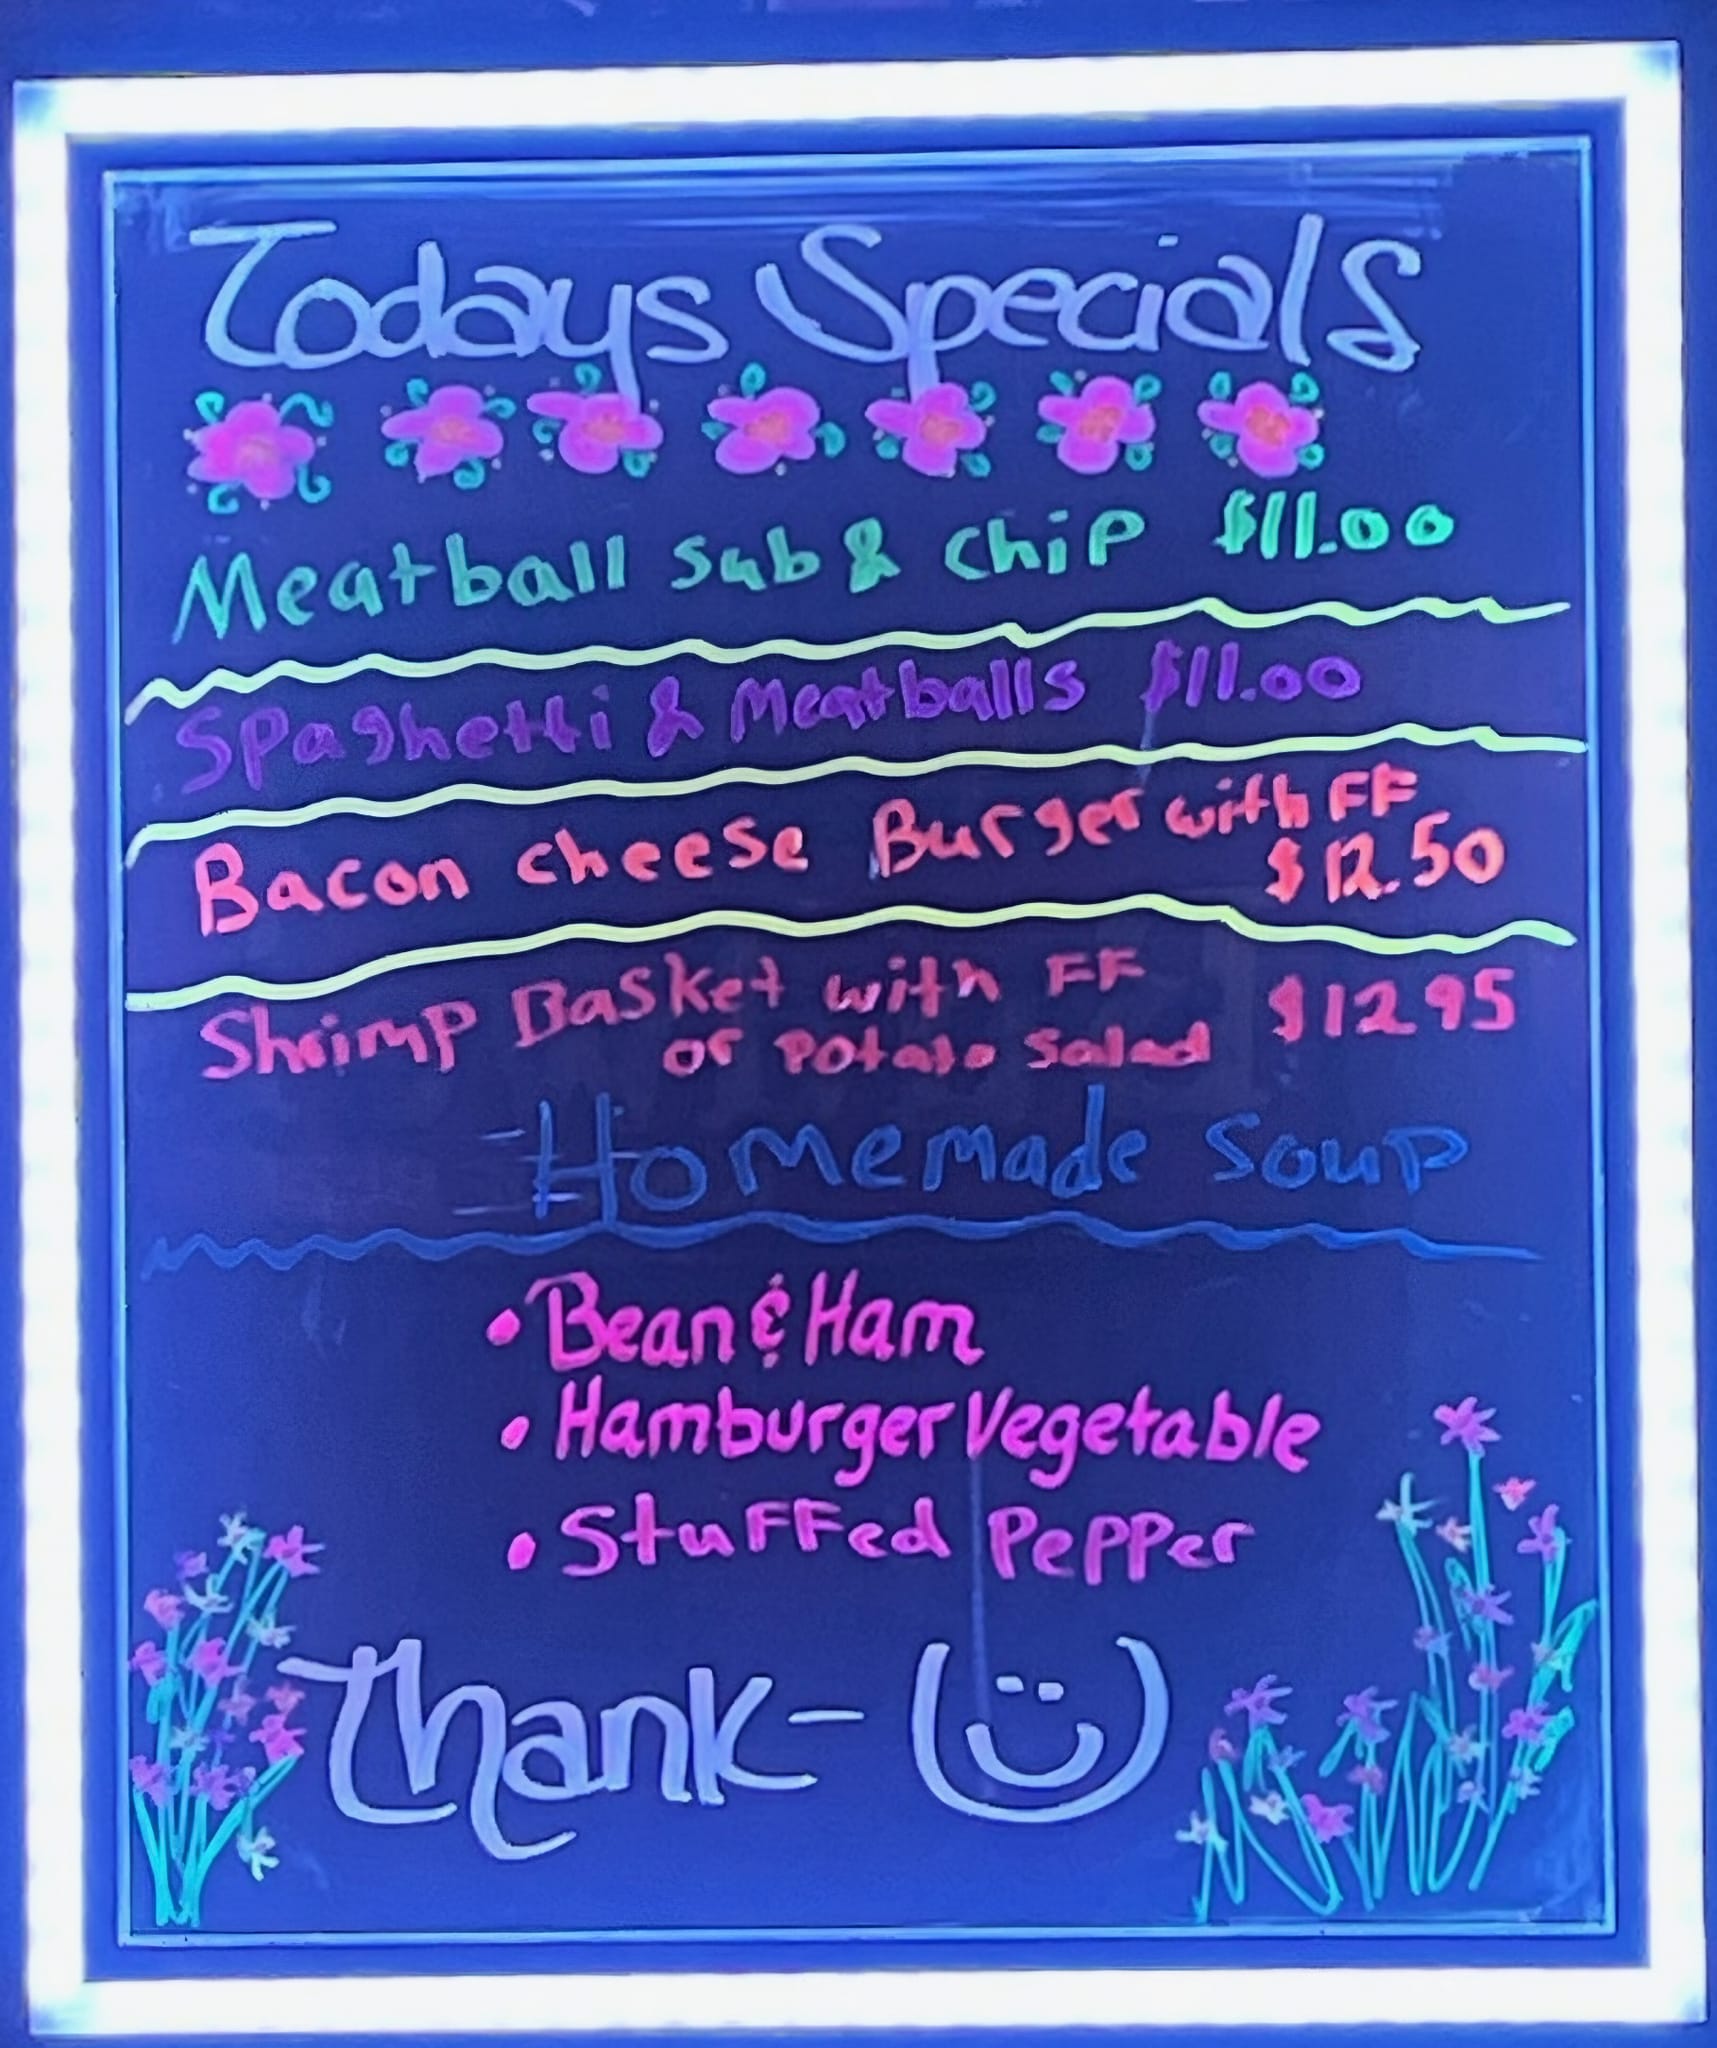 Todays Specials
Meatball Sub & Chip $11.00
Spaghetti & Meatballs $11.00
Bacon Cheese Burger with FF
$12.50
Shrimp Basket with FF
or Potato Salad $12 95
Homemade Soup
• Bean & Ham
• Hamburger Vegetable
• Stuffed Pepper
Thank-